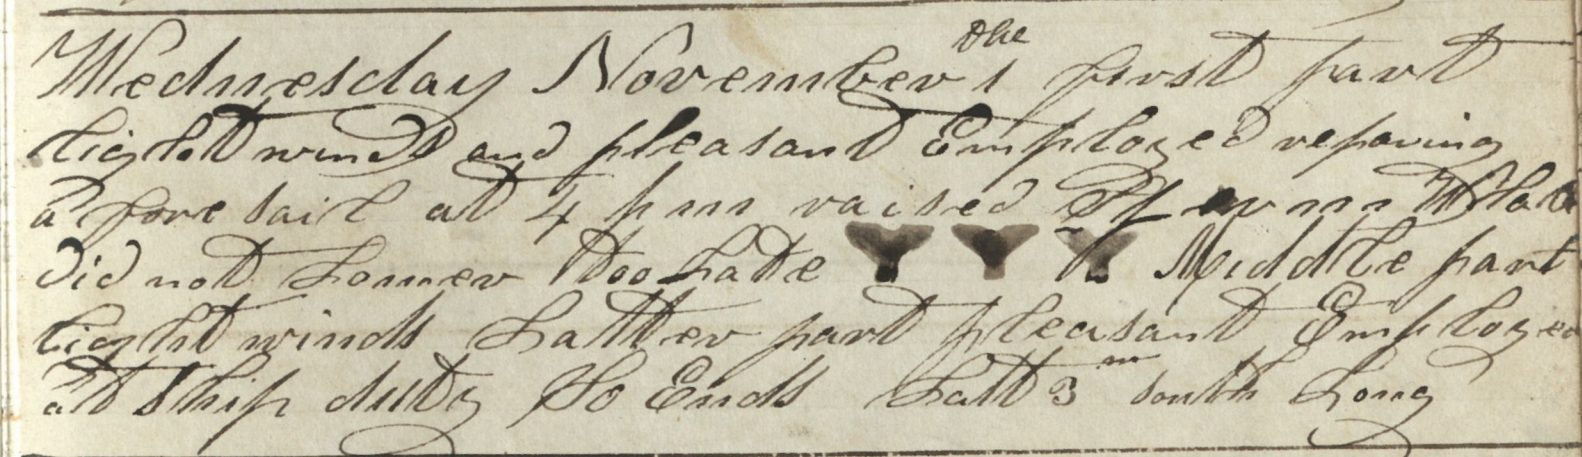 Wednesday November the 1 first part
light winds and pleasant Employed reparing
a fore sail at 4 pm raised Sperm Whale
did not Lower too Late Middle part
light winds Latter part pleasant Employed
at Ship duty So Ends Latt 3 m south Long